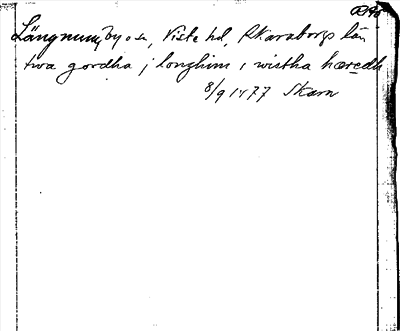 Längnum, by o sn, Viste hd, Skaraborgs län
twa gordha j longhim i wistha hæredh
8/9 1477 Skara